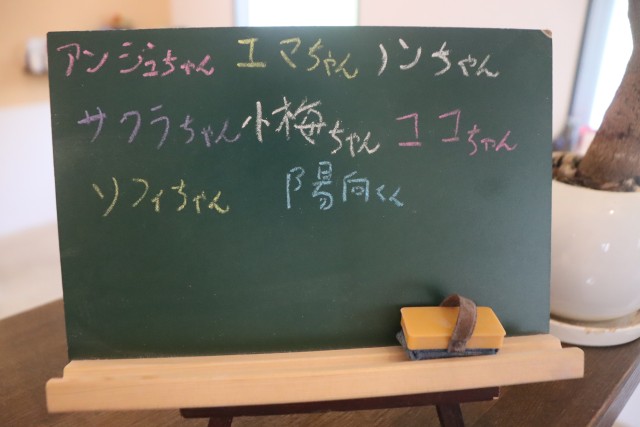 アンジュちゃん エマちゃん ノンちゃん
サクラちゃん 小梅ちゃん ココちゃん
ソフィちゃん 陽向くん